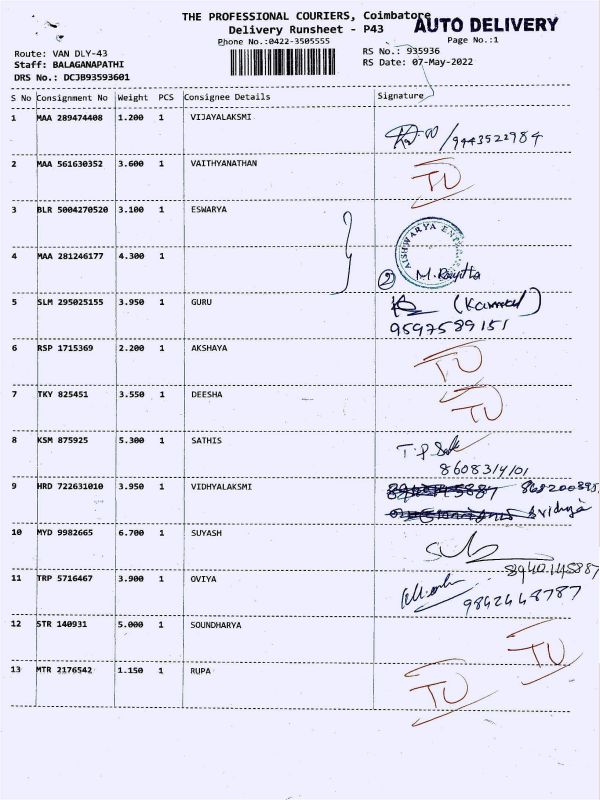 THE PROFESSIONAL COURIERS, Coimbatore
AUTO DELIVERY
Delivery Runsheet - P43
Phone No.:0422-3505555
Page No.:1
Route: VAN DLY-43
RS No.: 935936
Staff: BALAGANAPATHI
RS Date: 07-May-2022
DRS No.: DCJB93593601
S No Consignment No Weight PCS Consignee Details Signature
1 MAA 289474408 1.200 1 VIJAYALAKSMI
/9443522984
2 MAA 561630352 3.600 1 VAITHYANATHAN TU
3 BLR 5004270520 3.100 1 ESWARYA
AISHWARYA
4 MAA 281246177 4.300 1
2
5 SLM 295025155 3.950 1 GURU
9597589151
6 RSP 1715369 2.200 1 AKSHAYA TU
7 TKY 825451 3.550 1 DEESHA TU
8 KSM 875925 5.300 1 SATHIS
9 HRD 722631010 3.950 1 VIDHYALAKSMI
10 MYD 9982665 6.700 1 SUYASH
8940145887
11 TRP 5716467 3.900 1 OVIYA
9842448787
12 STR 140931 5.000 1 SOUNDHARYA TU
13 MTR 2176542 1.150 1 RUPA TU